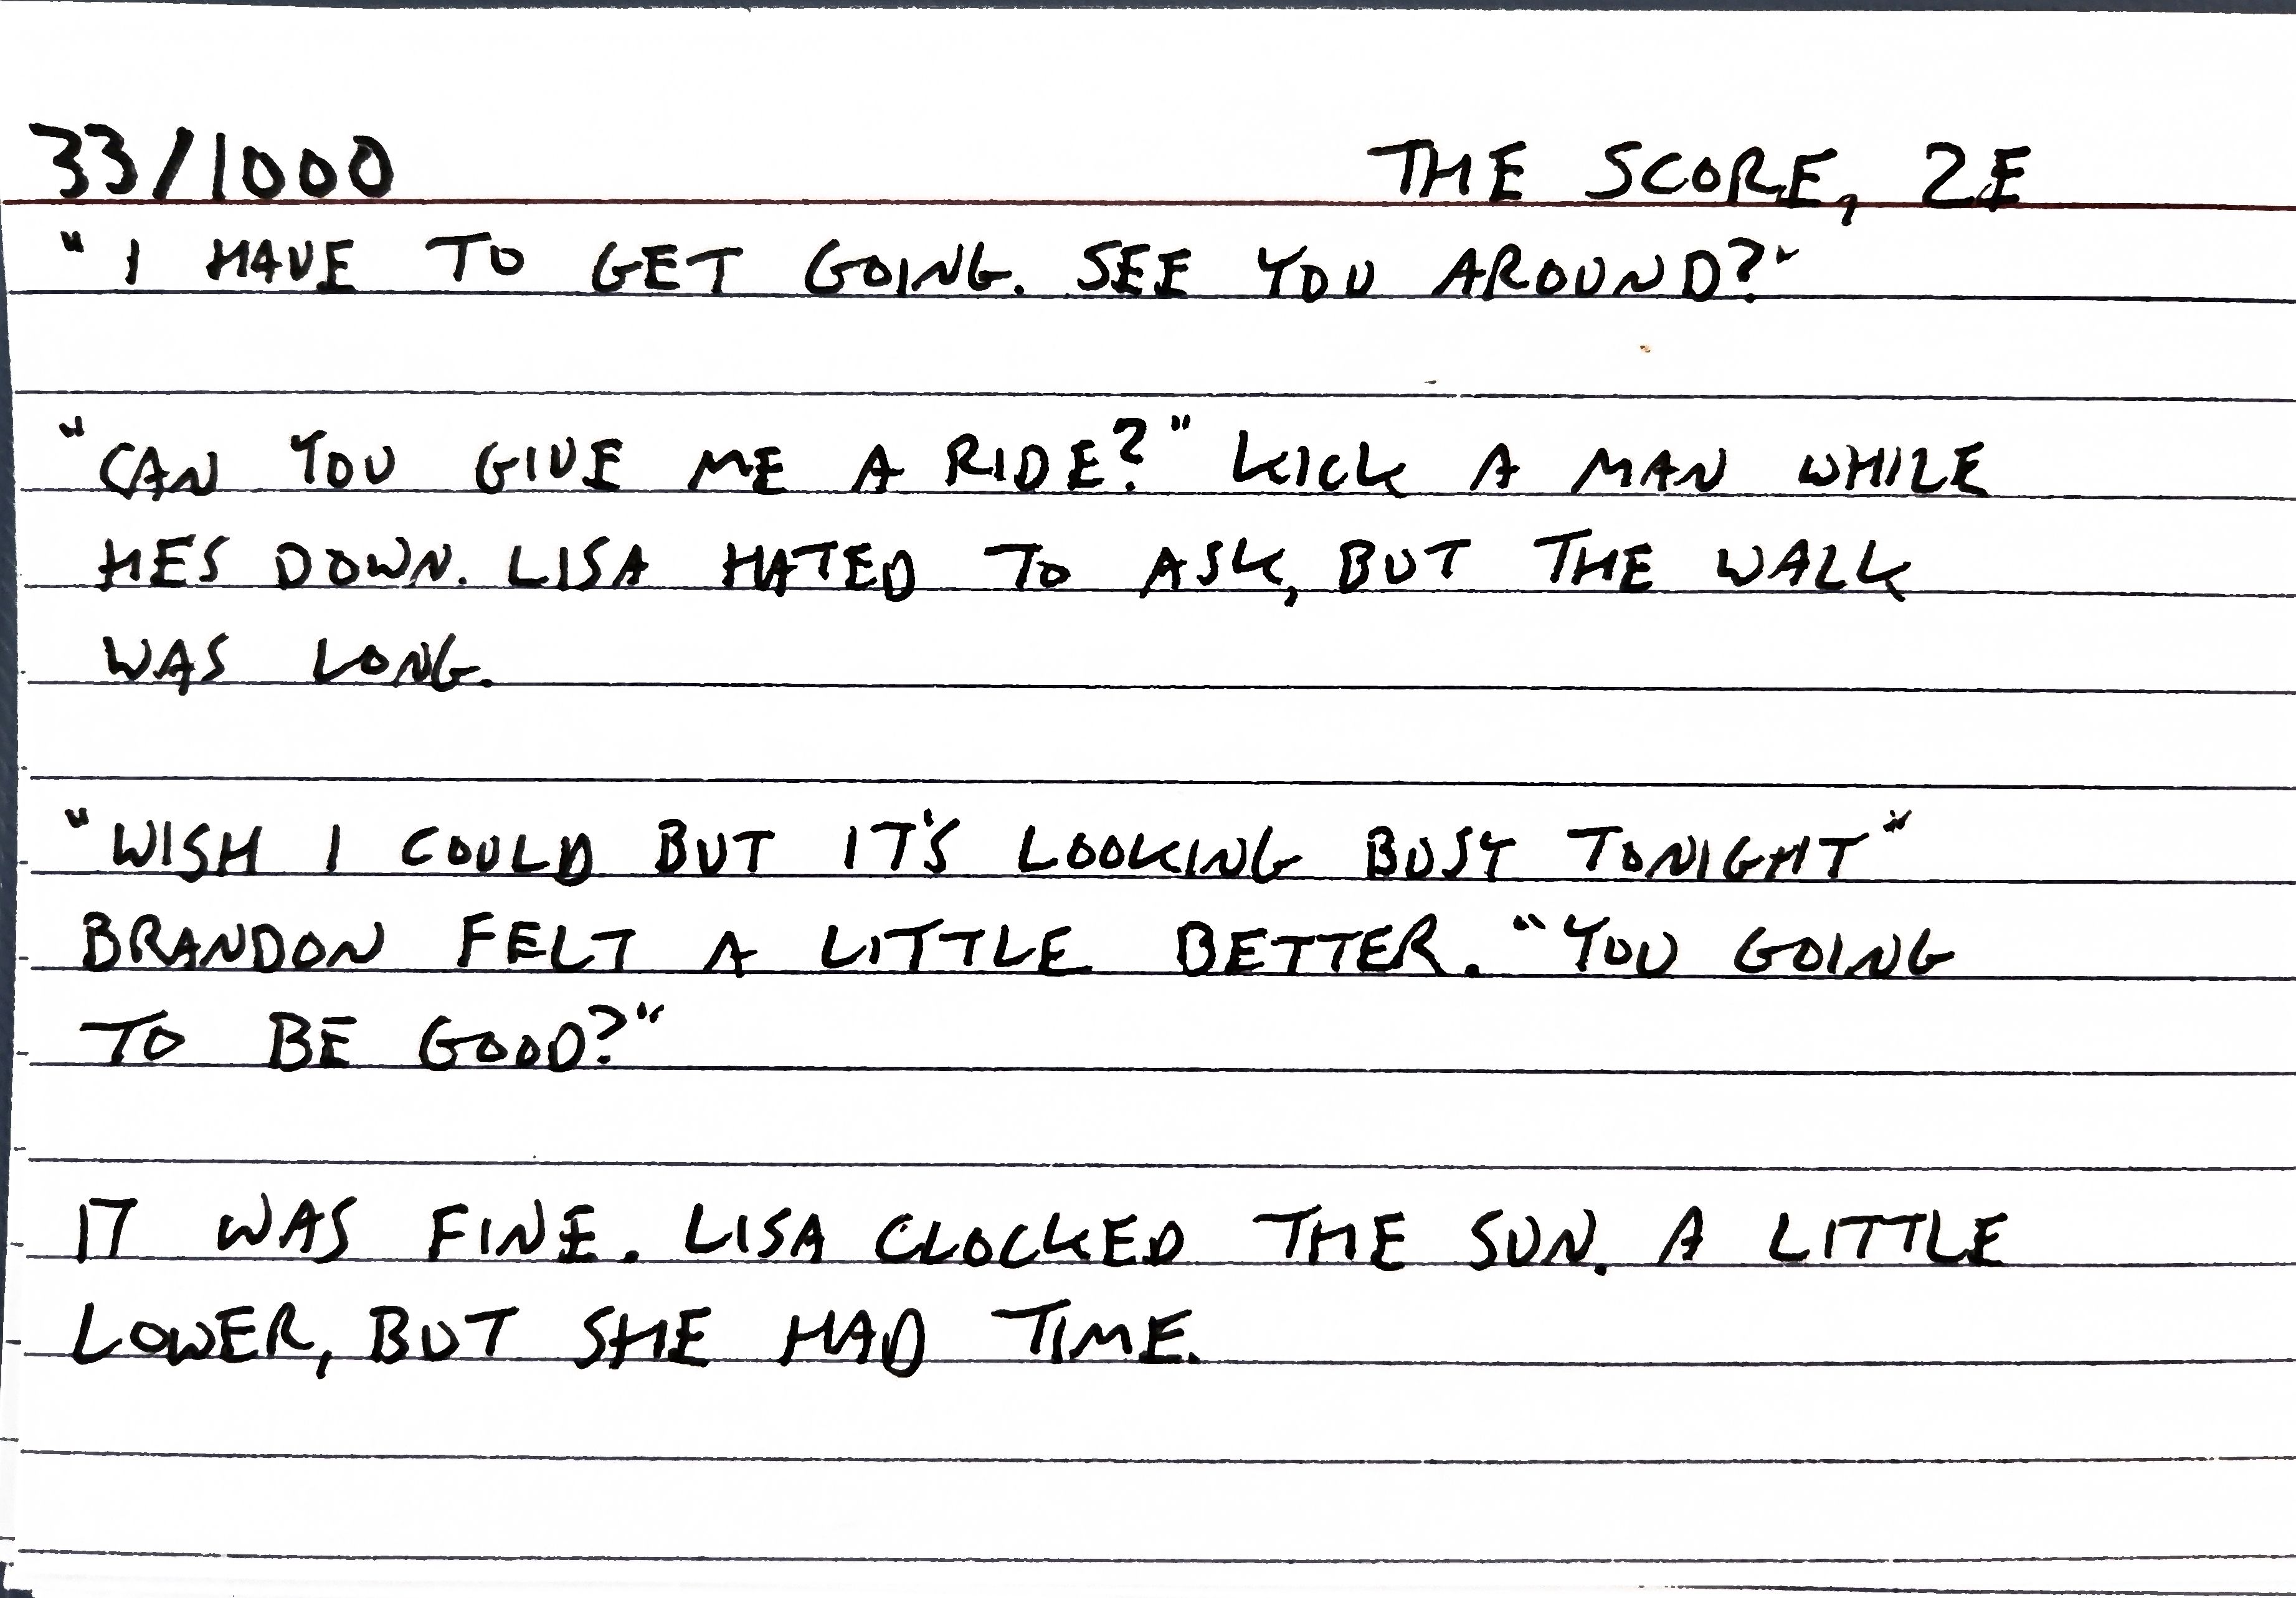 33/1000 THE SCORE, 2E
"I HAVE TO GET GOING. SEE YOU AROUND?"
"CAN YOU GIVE ME A RIDE?" KICK A MAN WHILE
HES DOWN. LISA HATED TO ASK, BUT THE WALK
WAS LONG.
"WISH I COULD BUT IT'S LOOKING BUSY TONIGHT"
BRANDON FELT A LITTLE BETTER. "YOU GOING
TO BE GOOD?"
IT WAS FINE. LISA CLOCKED THE SUN. A LITTLE
LOWER, BUT SHE HAD TIME.